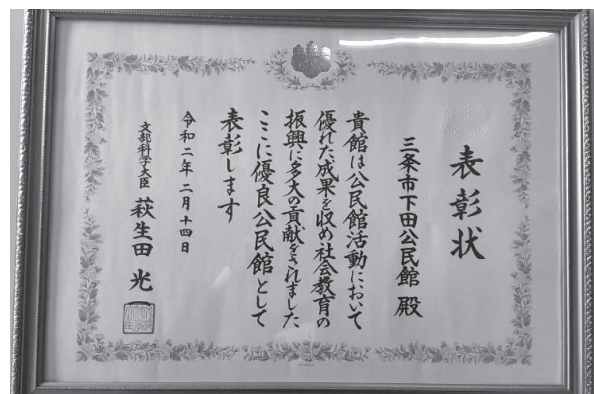 表彰状
三条市下田公民館 殿
貴館は公民館活動において
優れた成果を収め社会教育の
振興に多大の貢献をされました
ここに優良公民館として
表彰します
令和二年二月十四日
文部科学大臣 萩生田 光一